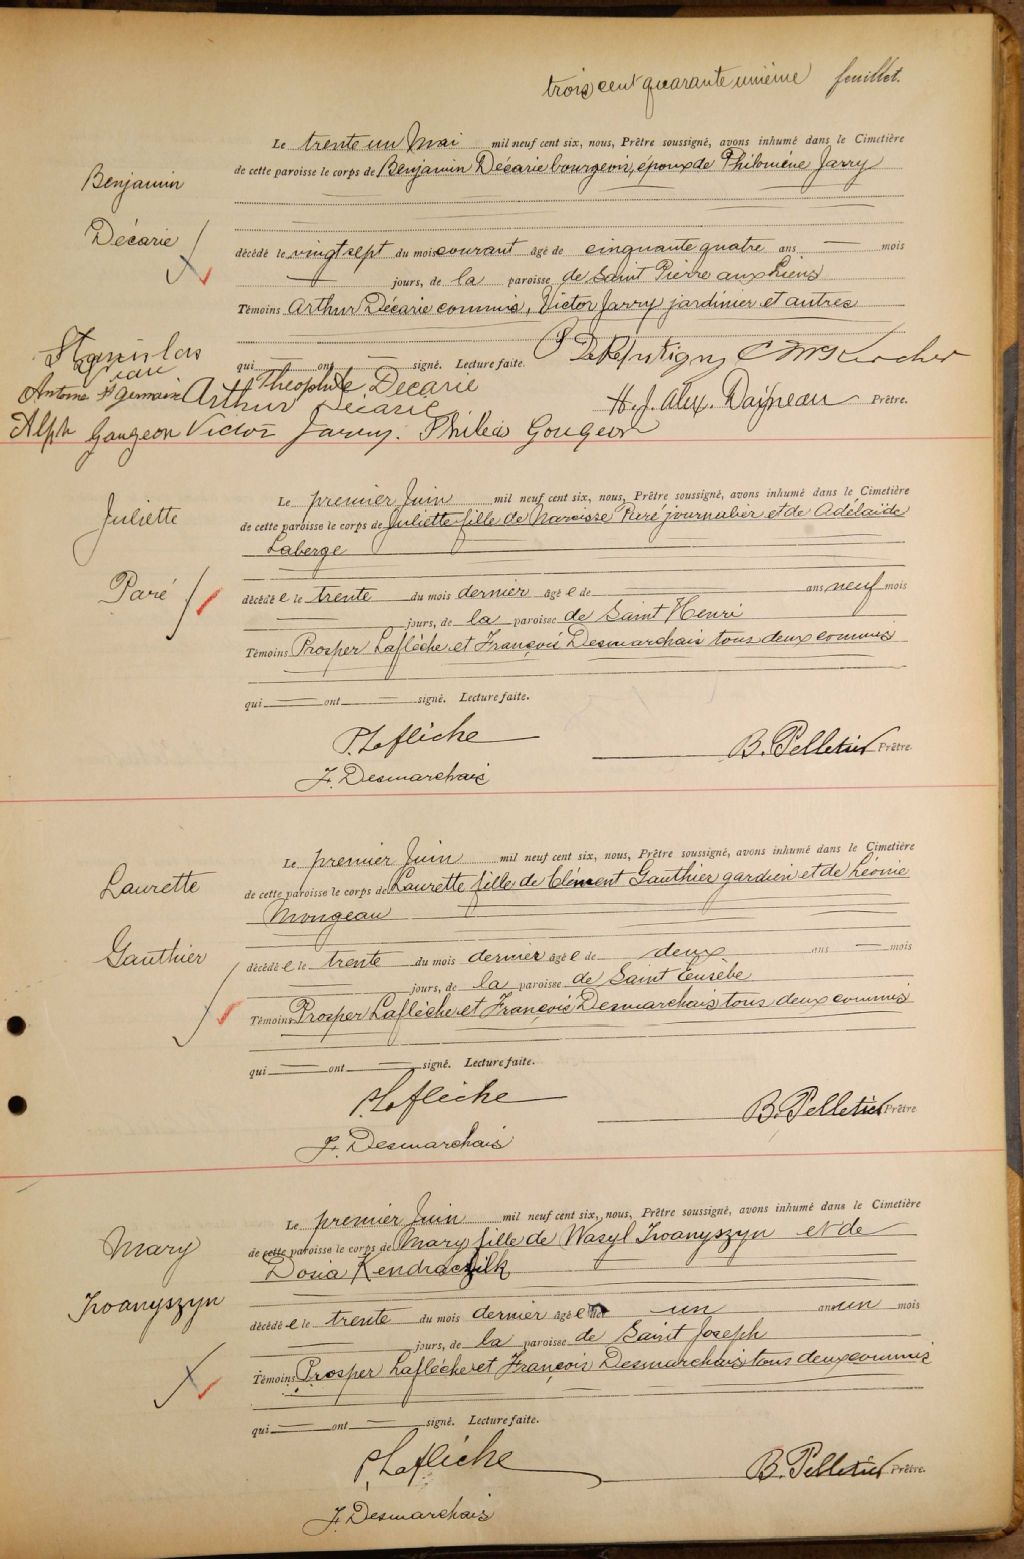 trois cent quarante unième feuillet.
Le trente un Mai mil neuf cent six, nous, Prêtre soussigné, avons inhumé dans le Cimetière
Benjamin
de cette paroisse le corps de Benjamin Décarie bourgeois, époux de Philomène Jarry
Décarie
décédé le vingt sept du mois courant âgé de cinquante quatre ans — mois
— jours, de la paroisse de Saint Pierre aux Liens
Témoins Arthur Décarie commis, Victor Jarry jardinier et autres
qui — ont — signé. Lecture faite.
Stanislas
Théophile Décarie
Antoine St germain Arthur Décarie H. J. Alex. Daigneau Prêtre.
Alph Gougeon Victor Jarry. Philéas Gougeon
Le premier Juin mil neuf cent six, nous, Prêtre soussigné, avons inhumé dans le Cimetière
Juliette
de cette paroisse le corps de Juliette fille de Narcisse Paré journalier et de Adélaïde
Laberge
Paré
décédée le trente du mois dernier âgée de ans neuf mois
— jours, de la paroisse de Saint Henri
Témoins Prosper Laflèche et François Desmarchais tous deux commis
qui — ont — signé. Lecture faite.
P. Laflèche
B. Pelletier Prêtre.
F. Desmarchais
Le premier Juin mil neuf cent six, nous, Prêtre soussigné, avons inhumé dans le Cimetière
Laurette
de cette paroisse le corps de Laurette fille de Clément Gauthier gardien et de Léonie
Mongeau
Gauthier
décédée le trente du mois dernier âgée de deux ans — mois
— jours, de la paroisse de Saint Eusèbe
Témoins Prosper Laflèche et François Desmarchais tous deux commis
qui — ont — signé. Lecture faite.
P. Laflèche
B. Pelletier Prêtre
F. Desmarchais
Le premier Juin mil neuf cent six, nous, Prêtre soussigné, avons inhumé dans le Cimetière
Mary
de cette paroisse le corps de Mary fille de Wasyl Iwanyszyn et de
Dosia
Iwanyszyn
décédée le trente du mois dernier âgée de un an un mois
— jours, de la paroisse de Saint Joseph
Témoins Prosper Laflèche et François Desmarchais tous deux commis
qui — ont — signé. Lecture faite.
P. Laflèche
B. Pelletier Prêtre.
F. Desmarchais